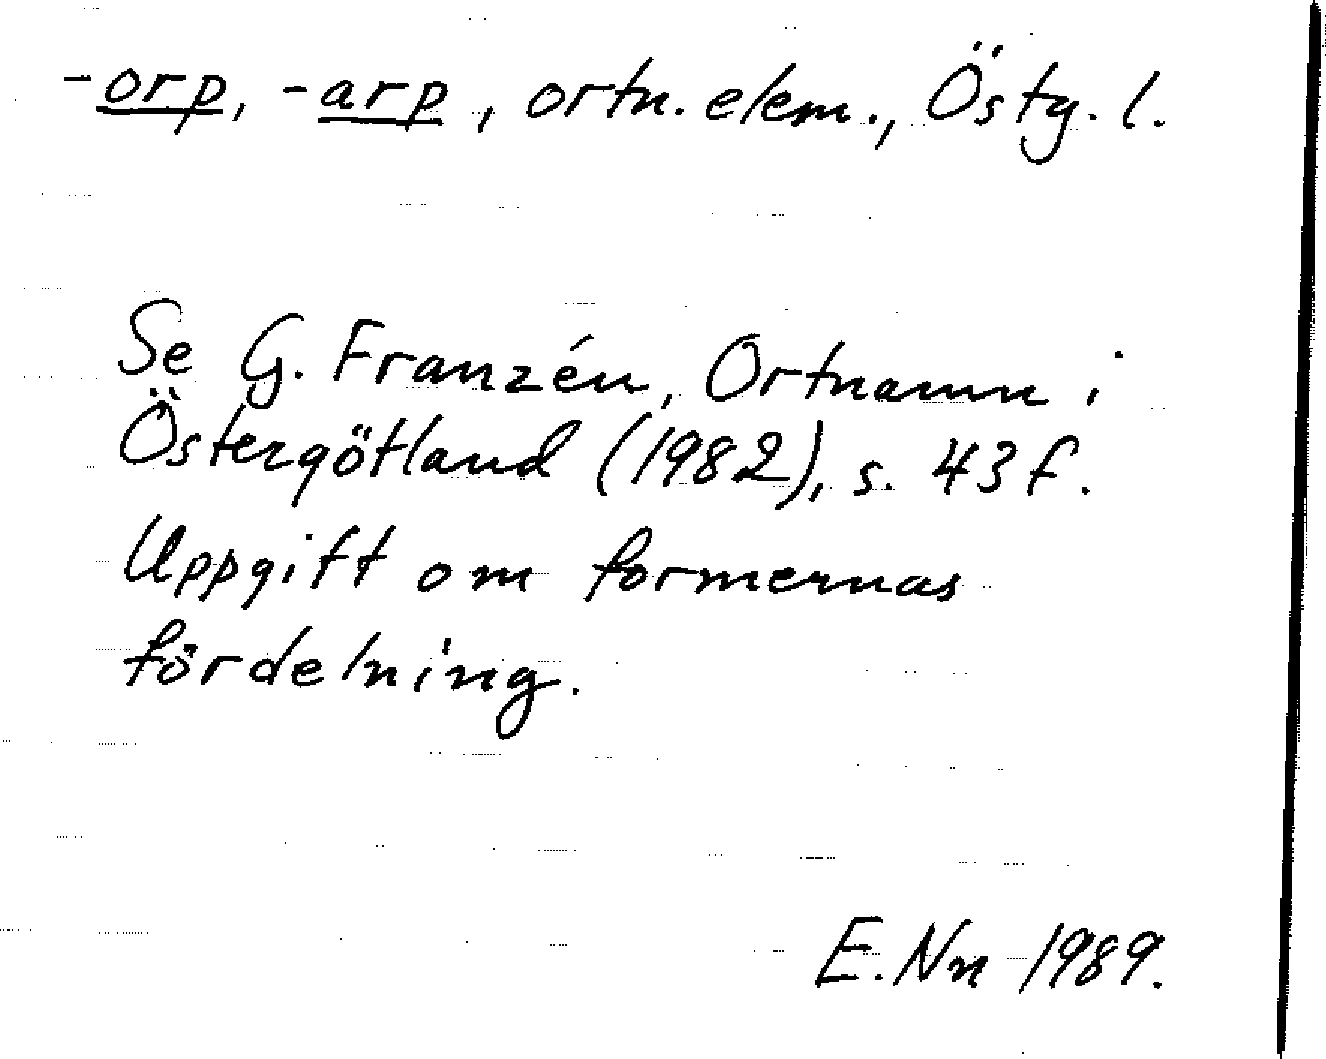 -orp, -arp, ortn. elem., Östg. l.
Se G. Franzén, Ortnamn i
Östergötland (1982), s. 43 f.
Uppgift om formernas
fördelning.
E. Nn 1989.